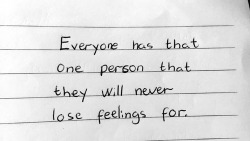 Everyone has that
one person that
they will never
lose feelings for.